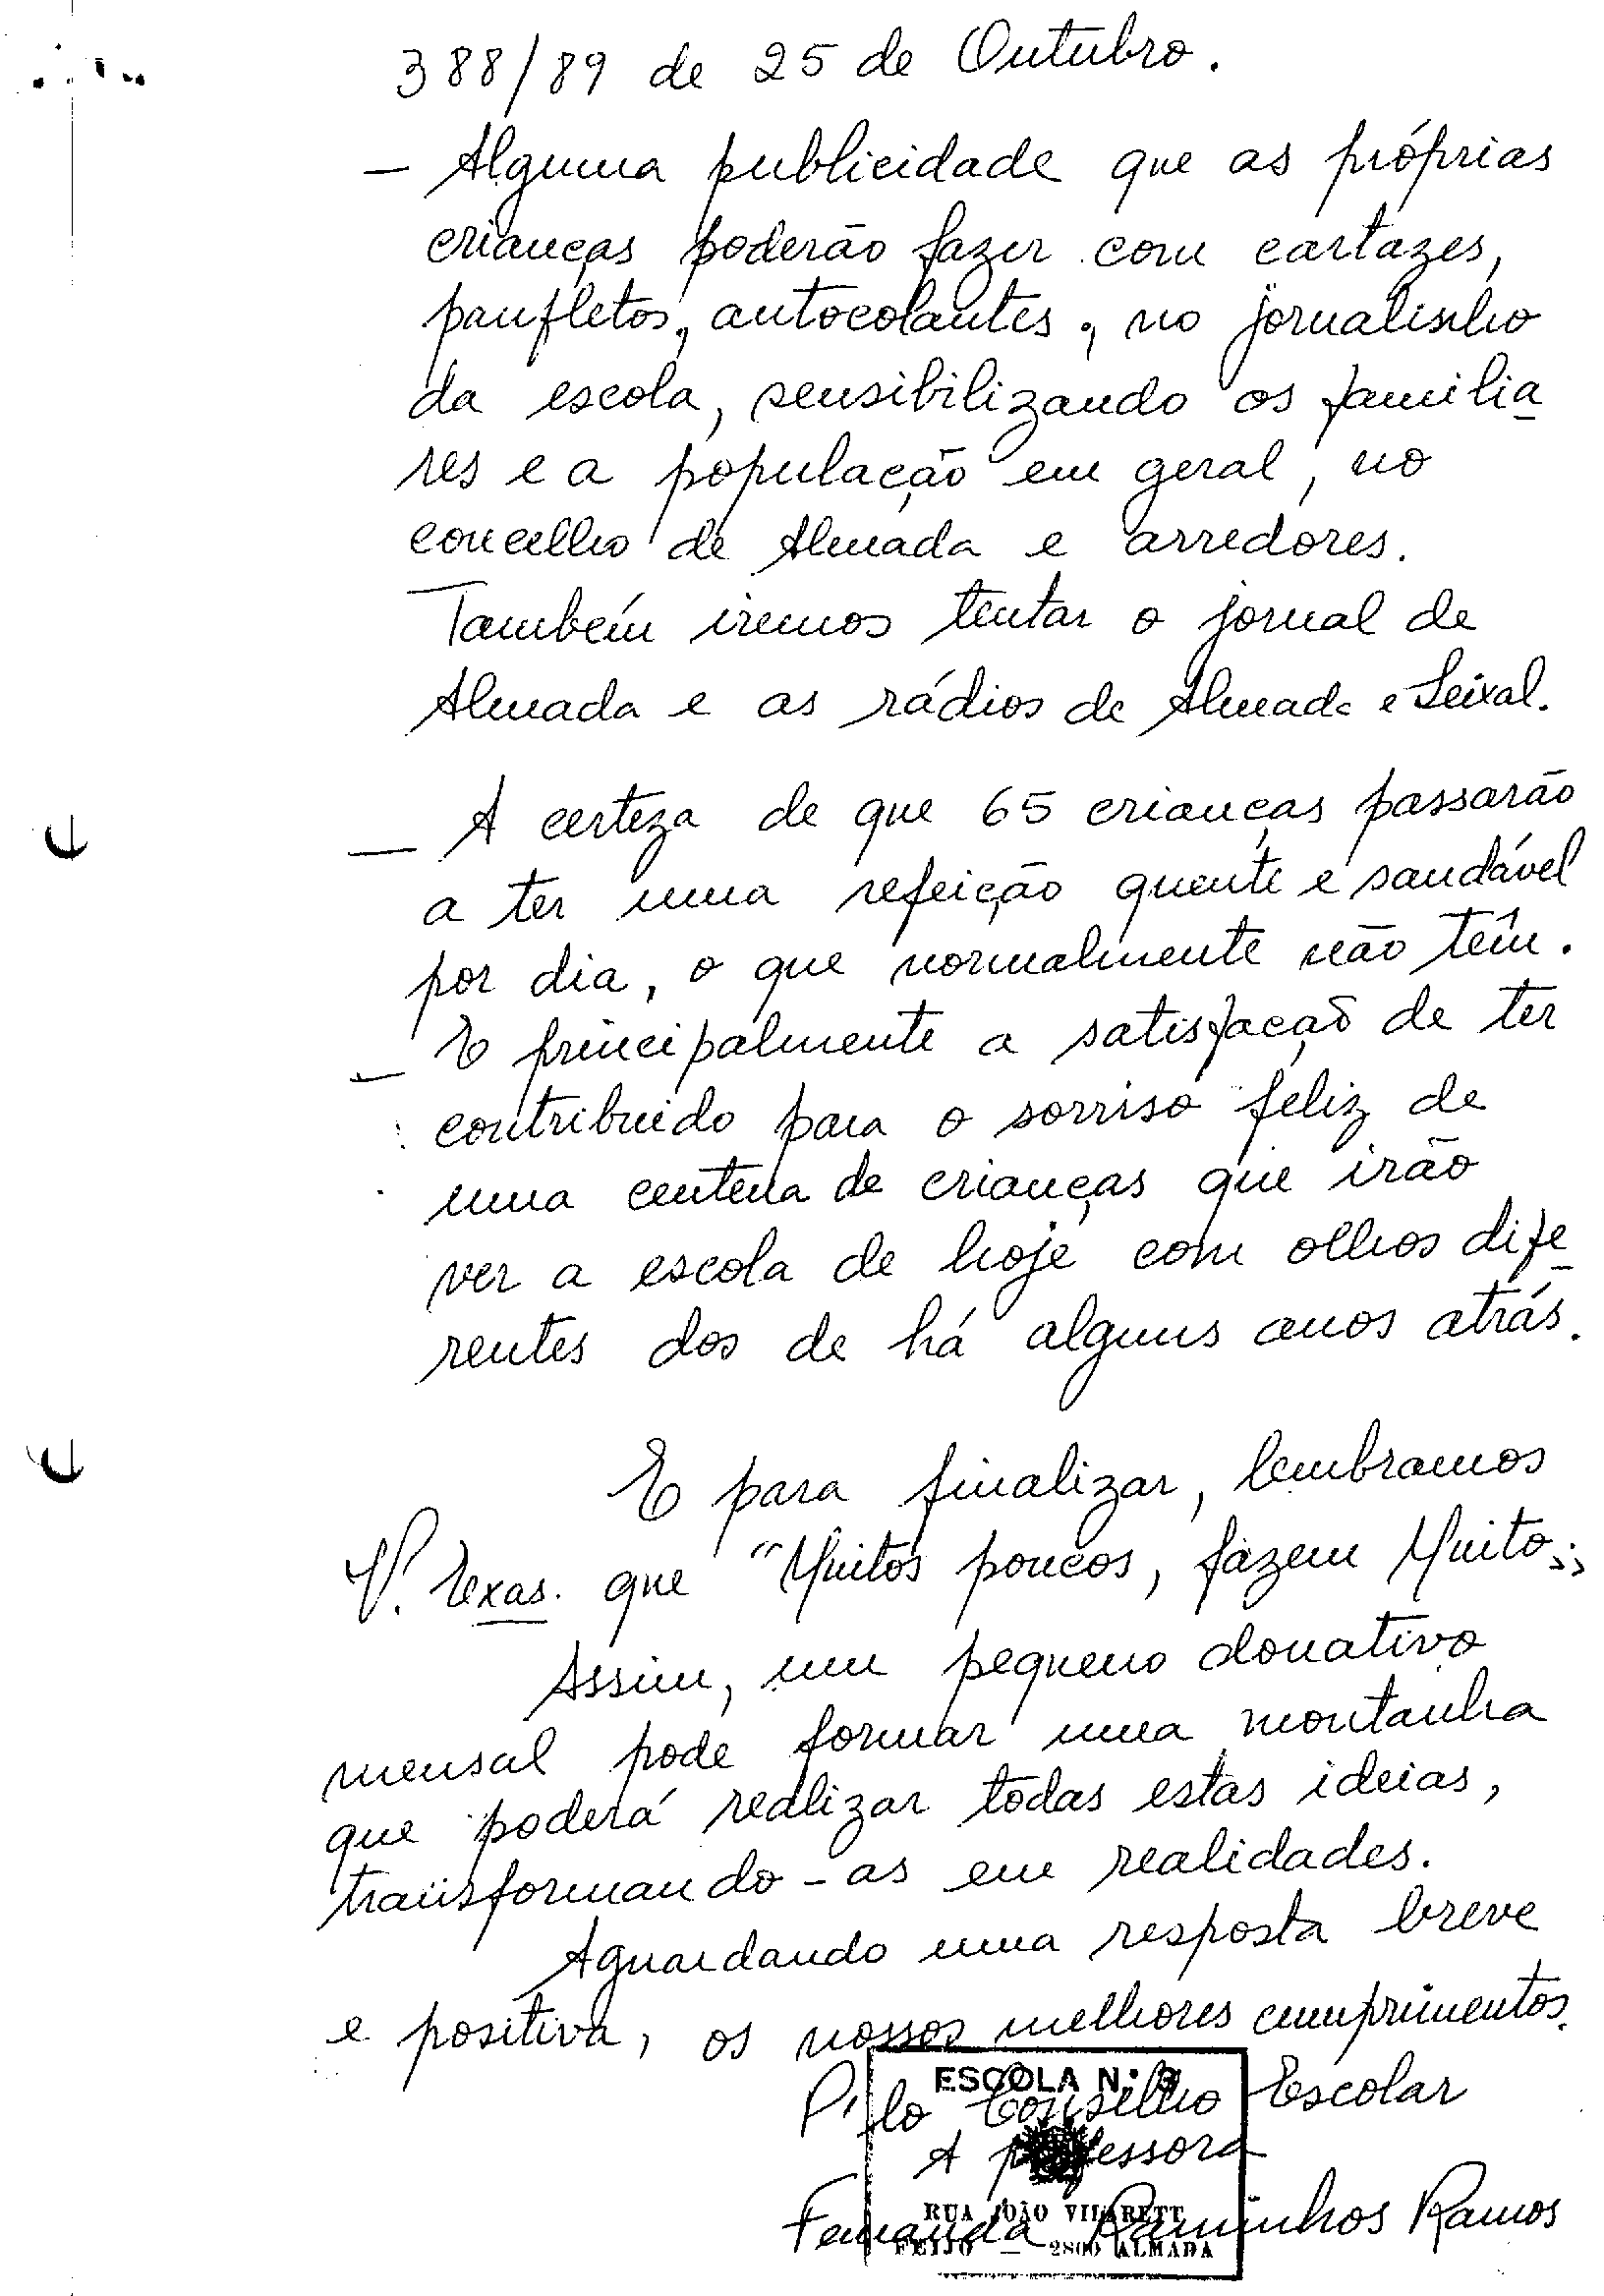 388/89 de 25 de Outubro.
— Alguma publicidade que as próprias
crianças poderão fazer com cartazes,
panfletos, autocolantes, no jornalinho
da escola, sensibilizando os familia
res e a população em geral, no
concelho de Almada e arredores.
Também iremos tentar o jornal de
Almada e as rádios de Almada e Seixal.
— A certeza de que 65 crianças passarão
a ter uma refeição quente e saudável
por dia, o que normalmente não têm.
— E principalmente a satisfação de ter
contribuido para o sorriso feliz de
uma centena de crianças que irão
ver a escola de hoje com olhos dife
rentes dos de há alguns anos atrás.
E para finalizar, lembramos
V. Exas. que "Muitos poucos, fazem Muito".
Assim, um pequeno donativo
mensal pode formar uma montanha
que poderá realizar todas estas ideias,
transformando-as em realidades.
Aguardando uma resposta breve
e positiva, os nossos melhores cumprimentos.
ESCOLA N.º 3
P'lo Conselho Escolar
A professora
RUA JOÃO VILARETT
Fernanda Raminhos Ramos
FEIJO — 2800 ALMADA